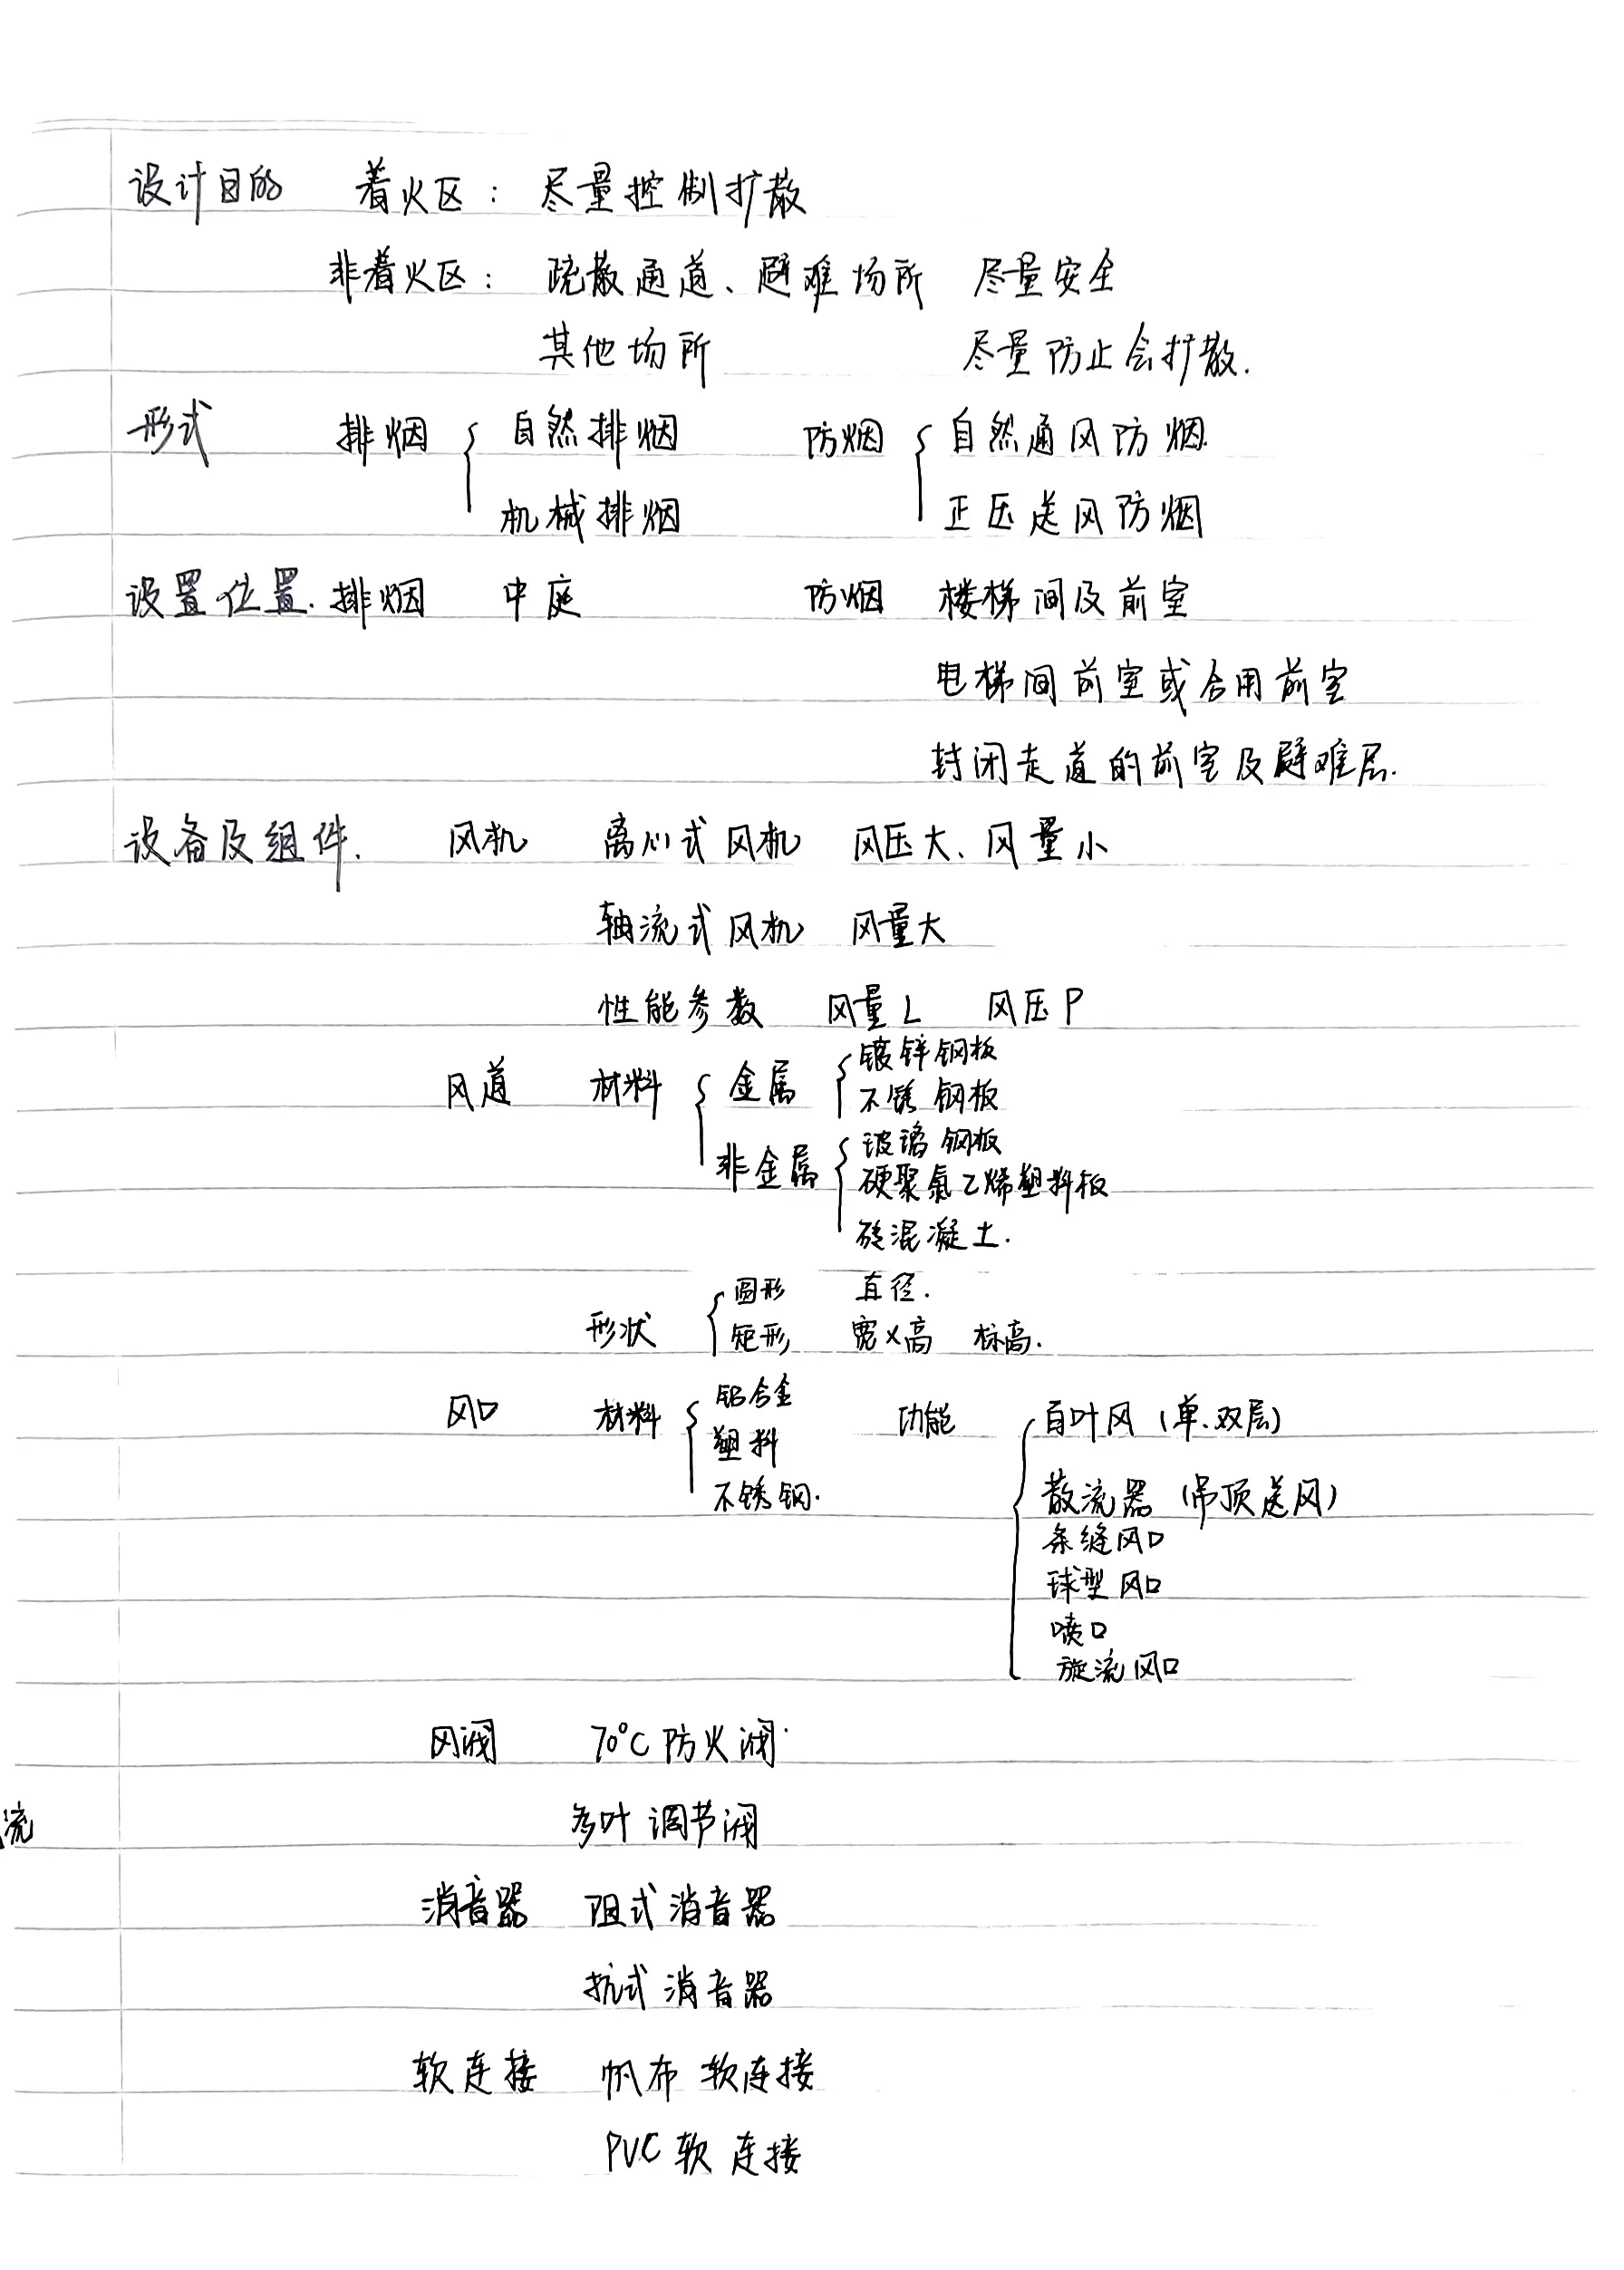 设计目的 着火区: 尽量控制扩散
非着火区: 疏散通道、避难场所 尽量安全
其他场所 尽量防止会扩散.
形式 排烟 { 自然排烟 防烟 { 自然通风防烟.
机械排烟 正压送风防烟
设置位置. 排烟 中庭 防烟 楼梯间及前室
电梯间前室或合用前室
封闭走道的前室及避难层.
设备及组件. 风机 离心式风机 风压大、风量小
轴流式风机 风量大
性能参数 风量L 风压P
风道 材料 { 金属 { 镀锌钢板
不锈钢板
非金属 { 玻璃钢板
硬聚氯乙烯塑料板
砖混凝土.
形状 { 圆形 直径.
矩形 宽×高 标高.
风口 材料 { 铝合金 功能 { 百叶风 (单.双层)
塑料
不锈钢.
散流器 (吊顶送风)
条缝风口
球型风口
喷口
旋流风口
风阀 70°C防火阀.
流 多叶调节阀
消音器 阻式消音器
抗式消音器
软连接 帆布软连接
PVC软连接